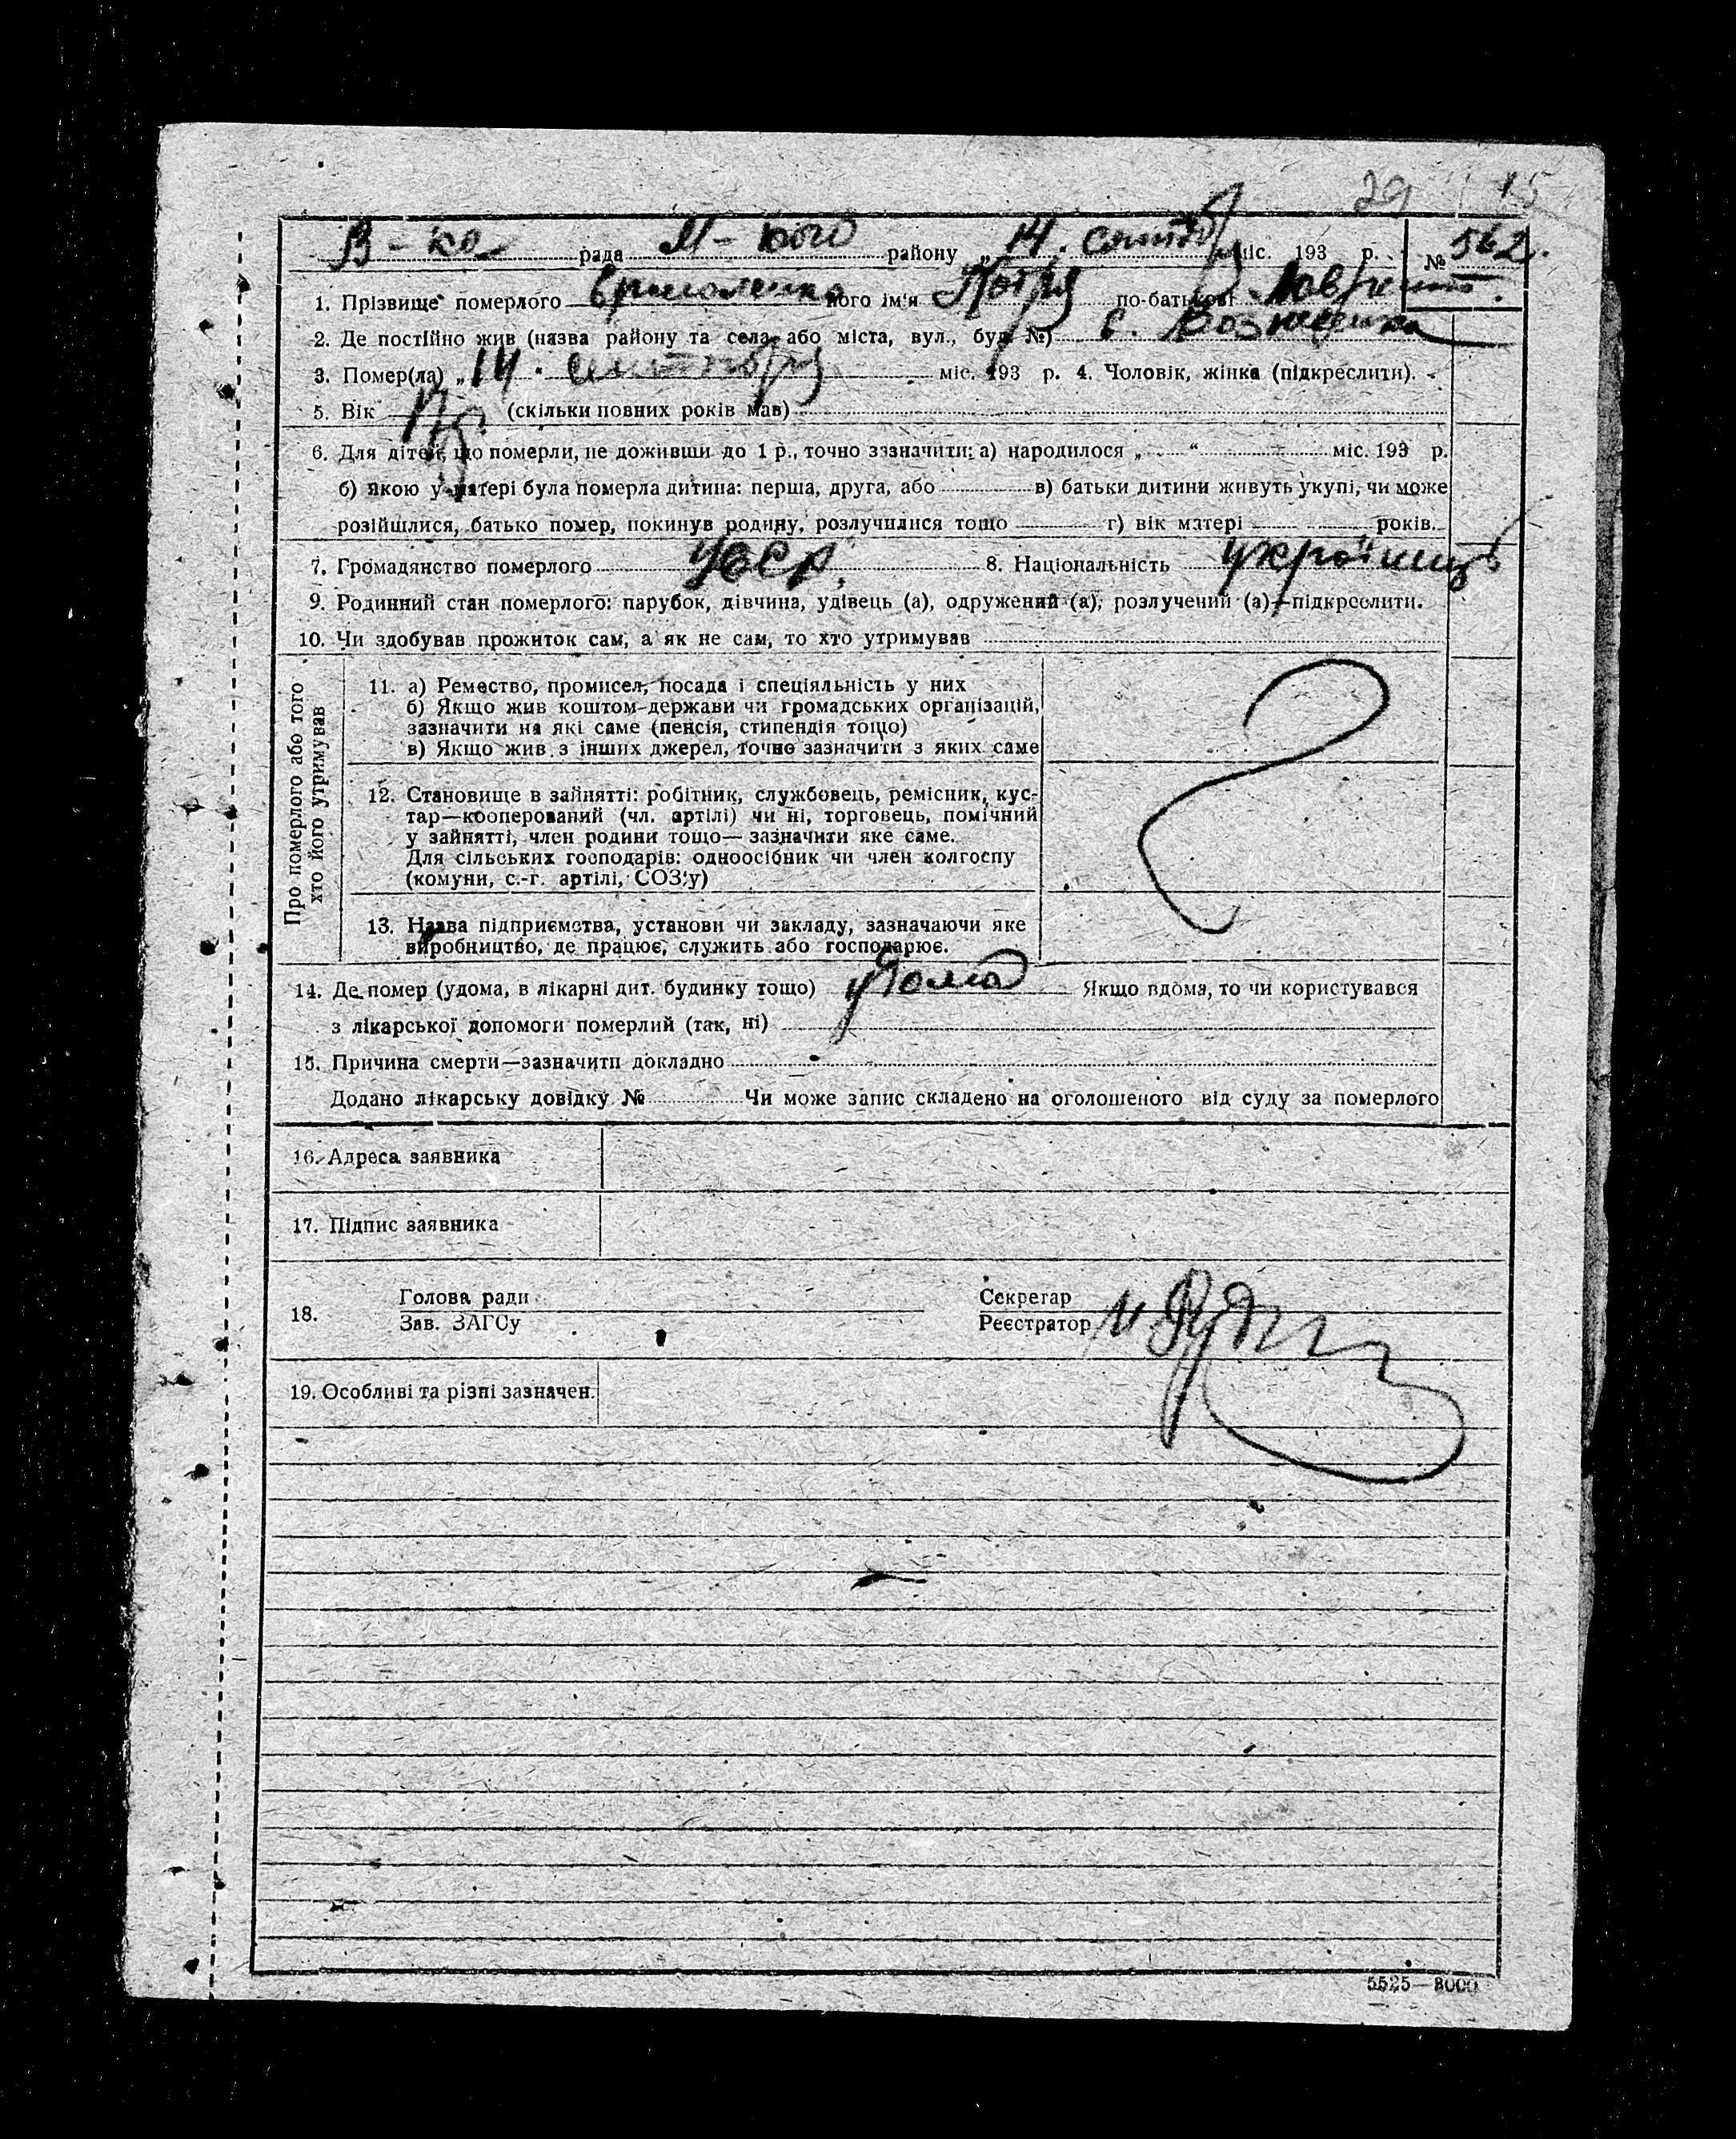 29 15
В-ка рада М-кого району „14. сентяб міс. 193 р. № 562.
1. Прізвище померлого Ермоленко його ім'я Петро по-батькові
2. Де постійно жив (назва району та села, або міста, вул., буд. №) с. Вознесенка
3. Помер(ла) „14" сентября міс. 193 р. 4. Чоловік, жінка (підкреслити).
5. Вік (скільки повних років мав)
6. Для дітей, що померли, не доживши до 1 р., точно зазначити: а) народилося „ “ міс. 193 р.
б) якою у матері була померла дитина: перша, друга, або в) батьки дитини живуть укупі, чи може
розійшлися, батько помер, покинув родину, розлучилися тощо г) вік матері років.
7. Громадянство померлого УССР. 8. Національність українець
9. Родинний стан померлого: парубок, дівчина, удівець (а), одружений (а), розлучений (а)—підкреслити.
10. Чи здобував прожиток сам, а як не сам, то хто утримував
Про померлого або того
хто його утримував
11. а) Ремество, промисел, посада і спеціяльність у них
б) Якщо жив коштом держави чи громадських організацій,
зазначити на які саме (пенсія, стипендія тощо)
в) Якщо жив з інших джерел, точно зазначити з яких саме
12. Становище в зайнятті: робітник, службовець, ремісник, кус-
тар—кооперований (чл. артілі) чи ні, торговець, помічний
у зайнятті, член родини тощо— зазначити яке саме.
Для сільських господарів: одноосібник чи член колгоспу
(комуни, с.-г. артілі, СОЗ'у)
13. Назва підприємства, установи чи закладу, зазначаючи яке
виробництво, де працює, служить або господарює.
14. Де помер (удома, в лікарні дит. будинку тощо) удома Якщо вдома, то чи користувався
з лікарської допомоги померлий (так, ні)
15. Причина смерти—зазначити докладно
Додано лікарську довідку № Чи може запис складено на оголошеного від суду за померлого
16. Адреса заявника
17. Підпис заявника
18. Голова ради Секретар
Зав. ЗАГСу Реєстратор
19. Особливі та різні зазначен.
5525—8000